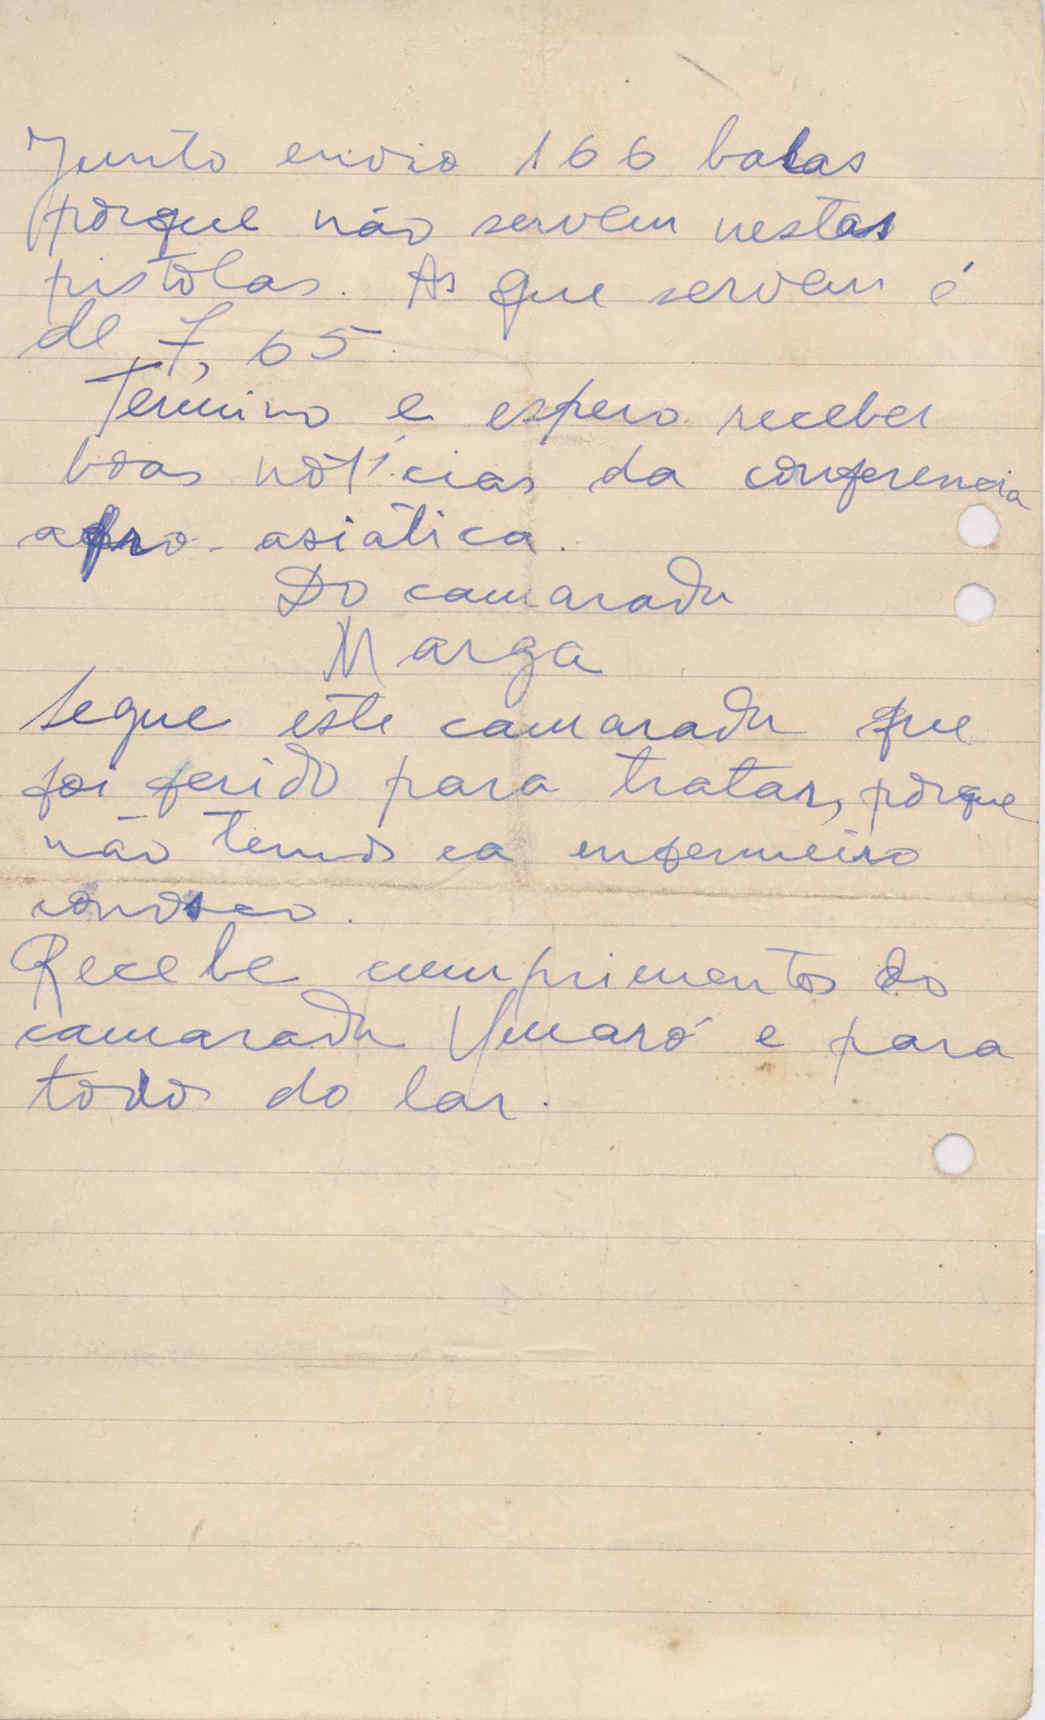 Junto envio 166 balas
porque não servem nestas
pistolas. As que servem é
de 7,65.
Termino e espero receber
boas notícias da conferencia
afro-asiática.
Do camarada
Marga
Segue este camarada que
foi ferido para tratar, porque
não temos ca enfermeiro
conosco.
Recebe cumprimentos do
camarada Umaró e para
todos do lar.